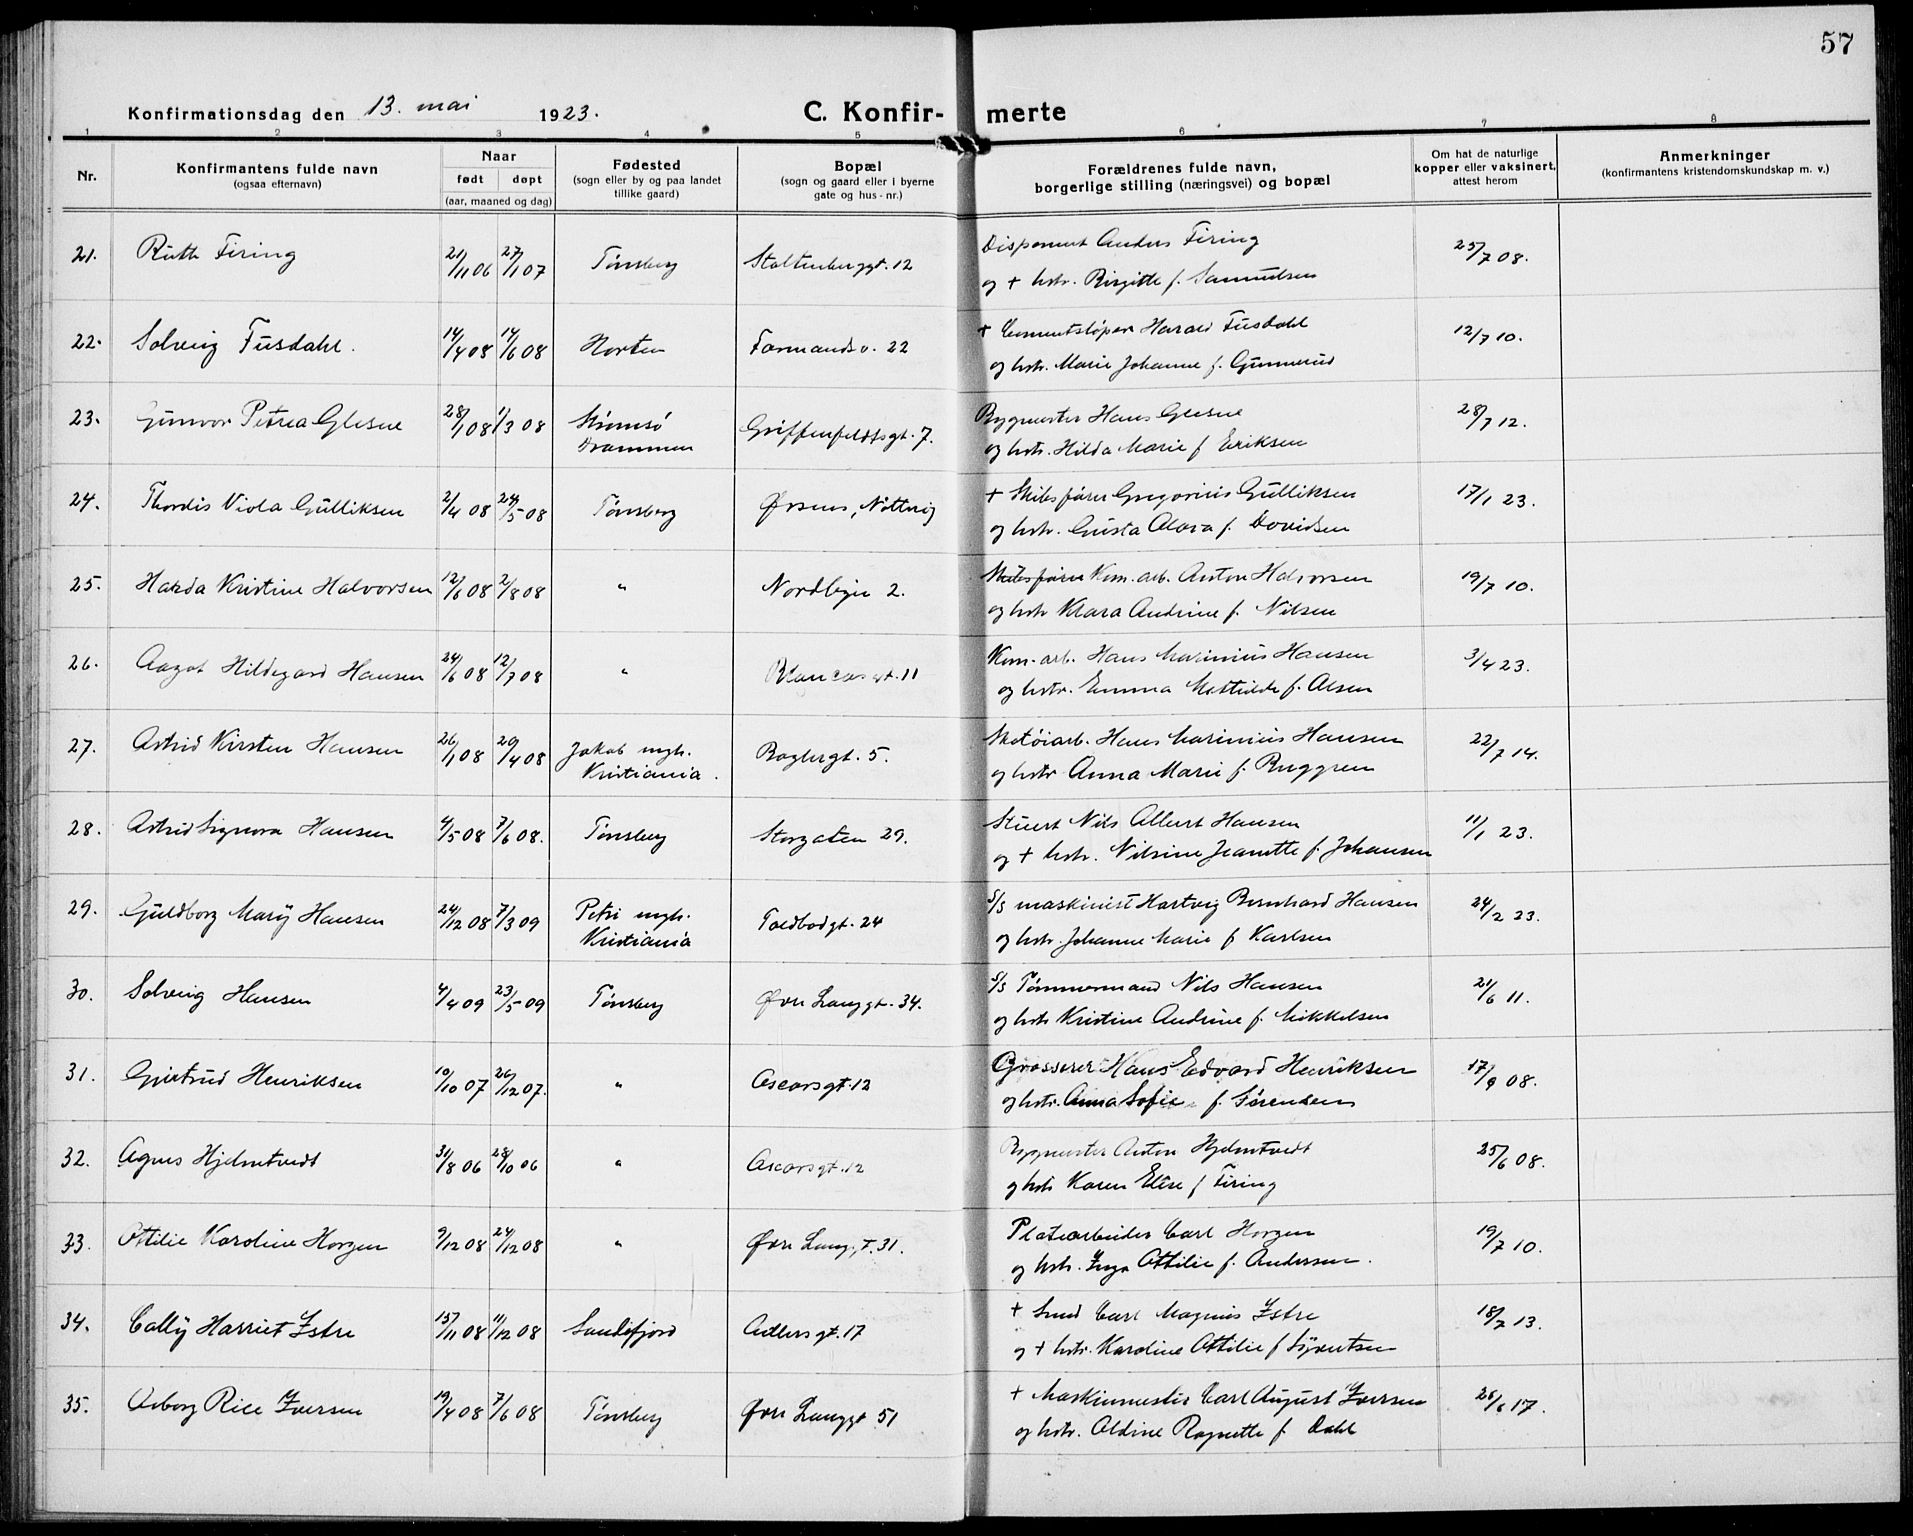 57
Konfirmationsdag den 13. mai 1923. C. Konfir- merte
1 2 3 4 5 6 7 8
Nr. Konfirmantens fulde navn (ogsaa efternavn) Naar født døpt (aar, maaned og dag) Fødested (sogn eller by og paa landet tillike gaard) Bopæl (sogn og gaard eller i byerne gate og hus-nr.) Forældrenes fulde navn, borgerlige stilling (næringsvei) og bopæl Om hat de naturlige kopper eller vaksinert, attest herom Anmerkninger (konfirmantens kristendomskundskap m. v.)
21. Ruth Firing 21/11 06 27/1 07 Tønsberg Stoltenberggt. 12 Disponent Anders Firing 25/7 08.
og + hstr. Birgitte f. Samuelsen
22. Solveig Fusdahl. 14/4 08 14/6 08 Horten Formandsv. 22 + Cementstøper Harald Fusdahl 12/7 10.
og hstr. Marie Johanne f. Gunnerud
23. Gunvor Petrea Glesne 28/1 08 1/3 08 Strømsø Griffenfeldtsgt. 7. Bygmester Hans Glesne 28/7 12.
Drammen og hstr. Hilda Marie f Eriksen
24. Thordis Viola Gulliksen 2/4 08 24/5 08 Tønsberg Ørsnes, Nøtterøy + Skibsfører Gregorius Gulliksen 17/1 23.
og hstr. Gusta Alava f. Davidsen
25. Harda Kristine Halvorsen 12/6 08 2/8 08 " Nordbyen 2. Skibsfører Kom. arb. Anton Halvorsen 19/7 10.
og hstr Klara Andrine f. Nilsen
26. Aagot Hildegard Hansen 24/6 08 12/7 08 " Blancasgt. 11 Kom. arb. Hans Marinius Hansen 3/4 23.
og hstr. Emma Mathilde f. Olsen
27. Astrid Kirsten Hansen 26/1 08 20/4 08 Jakob mgh. Baglergt. 5. Skotøiarb. Hans Marinius Hansen 22/7 14.
Kristiania. og hstr Anna Marie f. Bryggren
28. Astrid Signora Hansen 4/5 08 7/6 08. Tønsberg Storgaten 29. Stuert Nils Albert Hansen 11/1 23.
og + hstr. Nilsine Jeanette f. Johansen
29. Guldborg Mary Hansen 24/12 08 7/3 09 Petri mgh. Toldbodgt. 24 S/S maskinist Hartvig Bernhard Hansen 24/2 23.
Kristiania og hstr. Johanne Marie f Karlsen
30. Solveig Hansen 4/4 09 23/5 09 Tønsberg Øvre Langgt. 34. S/S Tømmermand Nils Hansen 21/6 11.
og hstr Kristine Andrine f. Mikkelsen
31. Gjertrud Henriksen 19/10 07 26/12 07. " Oscarsgt. 12 Grosserer Hans Edvard Henriksen 17/9 08.
og hstr. Anna Sofie f. Sørensen
32. Agnes Hjelmtvedt 31/8 06 28/10 06 " Oscarsgt. 12 Bygmester Anton Hjelmtvedt 25/6 08.
og hstr Karen Elise f Firing
33. Ottilie Karoline Horgen 9/12 08 24/12 08 " Øvre Langgt. 31. Platearbeider Carl Horgen 19/7 10.
og hstr. Inga Ottilie f. Andersen.
34. Cally Harriet Istre 15/11 08 11/12 08 Sandefjord Adlersgt. 17 + Smed Carl Magnus Istre 18/7 13.
og + hstr. Karoline Ottilie f Syvertsen
35. Asborg Rice Iversen 19/4 08 7/6 08 Tønsberg Øvre Langgt 51 + Maskinmester Carl August Iversen 26/6 17.
og hstr. Aldine Ragnette f Dahl